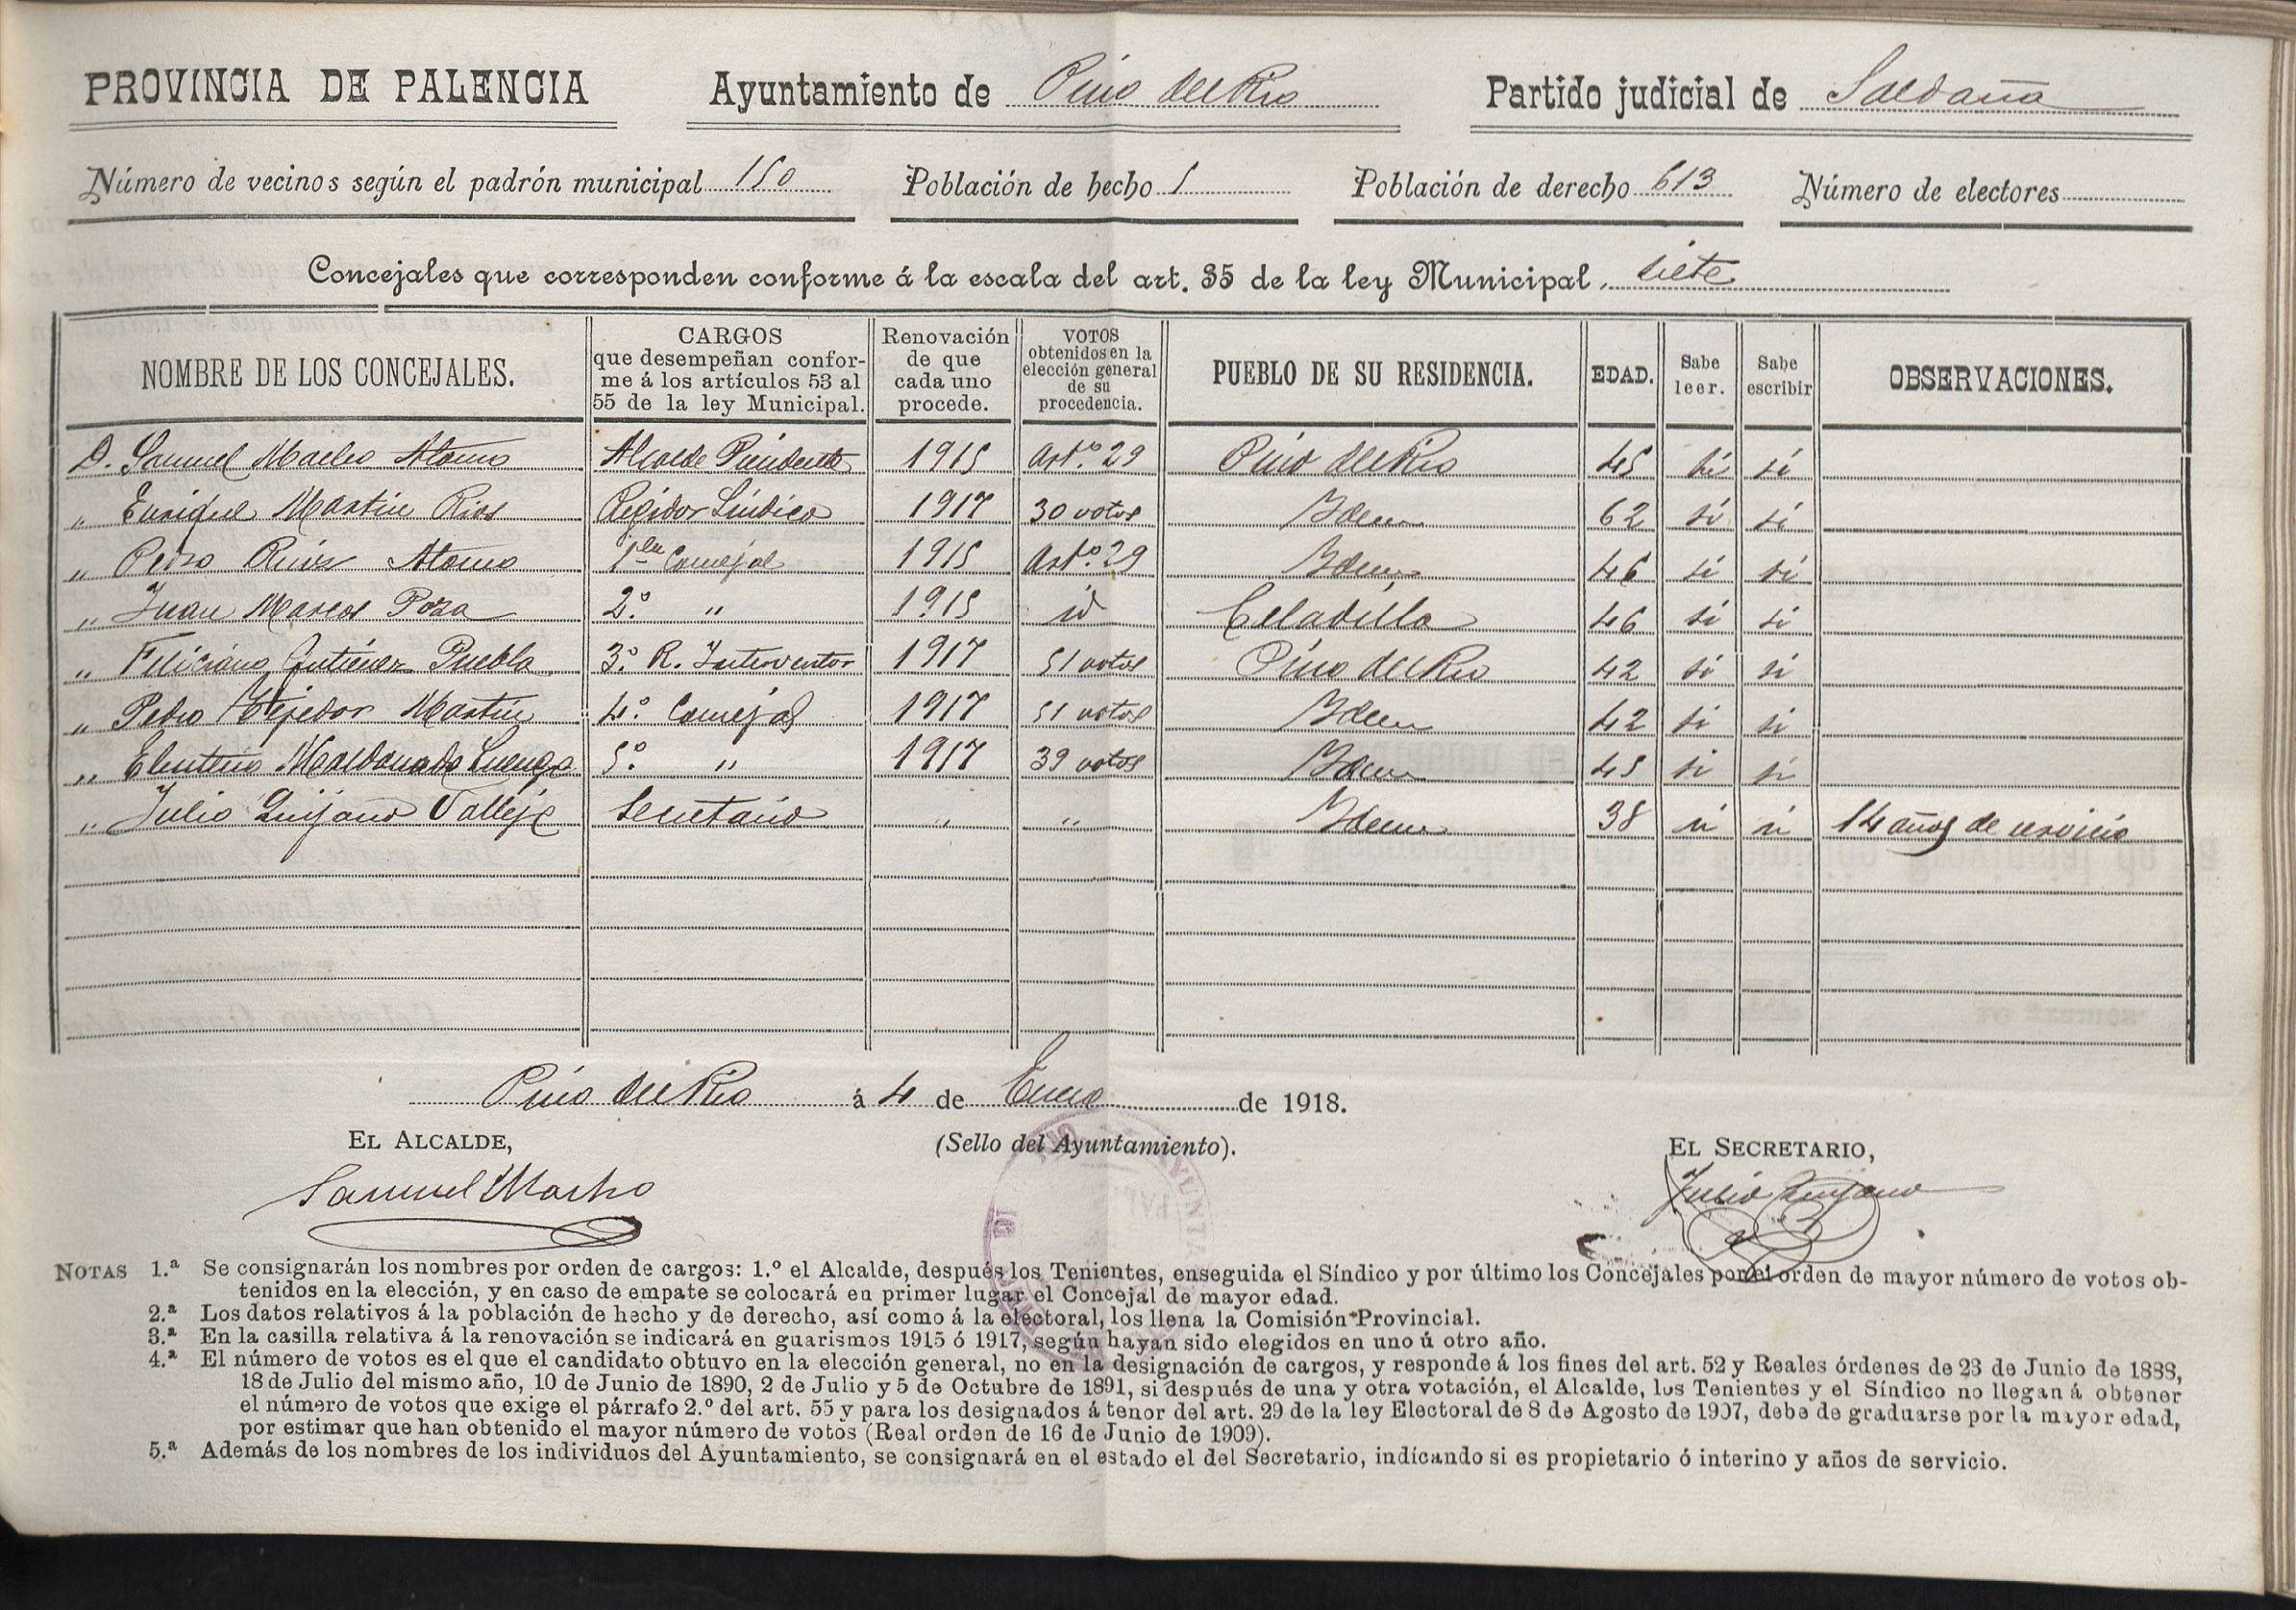 PROVINCIA DE PALENCIA Ayuntamiento de Pino del Rio Partido judicial de Saldaña
Número de vecinos según el padrón municipal 150 Población de hecho Población de derecho 613 Número de electores
Concejales que corresponden conforme á la escala del art. 35 de la ley Municipal, siete
NOMBRE DE LOS CONCEJALES. CARGOS que desempeñan conforme á los artículos 53 al 55 de la ley Municipal. Renovación de que cada uno procede. VOTOS obtenidos en la elección general de su procedencia. PUEBLO DE SU RESIDENCIA. EDAD. Sabe leer. Sabe escribir OBSERVACIONES.
D. Samuel Macho Alonso Alcalde Presidente 1915 Artº. 29 Pino del Rio 45 si si
" Enrique Martin Rios Regidor Sindico 1917 30 votos Idem 62 si si
" Pedro Ruiz Alonso 1er Concejal 1915 Artº. 29 Idem 46 si si
" Juan Marcos Poza 2º. " 1915 id Celadilla 46 si si
" Feliciano Gutierrez Puebla 3º. R. Interventor 1917 51 votos Pino del Rio 42 si si
" Pedro Tejedor Martin 4º. Concejal 1917 51 votos Idem 42 si si
" Eleuterio Maldonado Luengo 5º. " 1917 39 votos Idem 45 si si
" Julio Quijano Vallejo Secretario " " Idem 38 si si 14 años de servicio
Pino del Rio á 4 de Enero de 1918.
EL ALCALDE, (Sello del Ayuntamiento). EL SECRETARIO,
Samuel Macho Julio Quijano
NOTAS 1.ª Se consignarán los nombres por orden de cargos: 1.º el Alcalde, después los Tenientes, enseguida el Síndico y por último los Concejales por el orden de mayor número de votos ob-
tenidos en la elección, y en caso de empate se colocará en primer lugar el Concejal de mayor edad.
2.ª Los datos relativos á la población de hecho y de derecho, así como á la electoral, los llena la Comisión Provincial.
3.ª En la casilla relativa á la renovación se indicará en guarismos 1915 ó 1917, según hayan sido elegidos en uno ú otro año.
4.ª El número de votos es el que el candidato obtuvo en la elección general, no en la designación de cargos, y responde á los fines del art. 52 y Reales órdenes de 23 de Junio de 1888,
18 de Julio del mismo año, 10 de Junio de 1890, 2 de Julio y 5 de Octubre de 1891, si después de una y otra votación, el Alcalde, los Tenientes y el Síndico no llegan á obtener
el número de votos que exige el párrafo 2.º del art. 55 y para los designados á tenor del art. 29 de la ley Electoral de 8 de Agosto de 1907, debe de graduarse por la mayor edad,
por estimar que han obtenido el mayor número de votos (Real orden de 16 de Junio de 1909).
5.ª Además de los nombres de los individuos del Ayuntamiento, se consignará en el estado el del Secretario, indicando si es propietario ó interino y años de servicio.